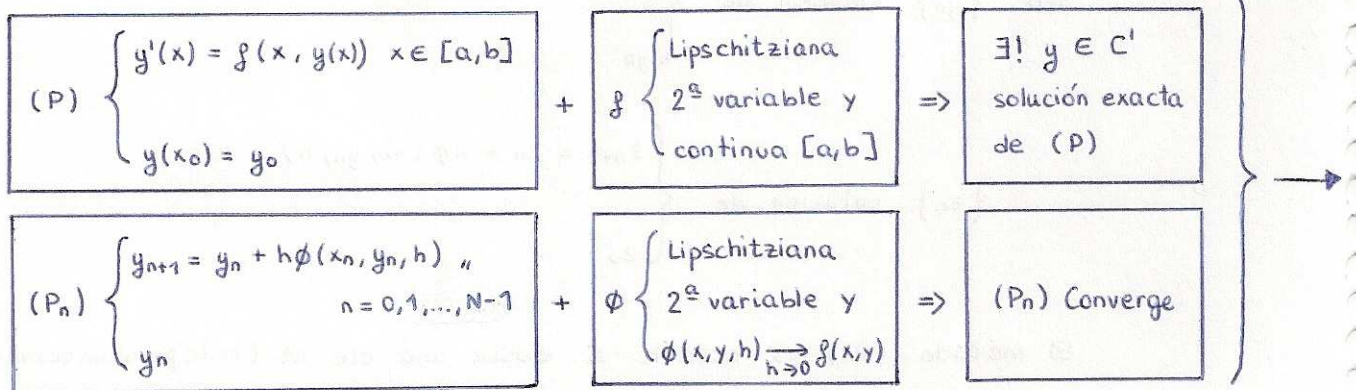 (P) { y'(x) = f(x, y(x)) x ∈ [a,b]
y(x₀) = y₀
+
f { Lipschitziana
2ª variable y
continua [a,b]
=>
∃! y ∈ C'
solución exacta
de (P)
(Pn) { yₙ₊₁ = yₙ + hϕ(xₙ, yₙ, h) ,,
n = 0,1,...,N-1
yₙ
+
ϕ { Lipschitziana
2ª variable y
ϕ(x,y,h) → f(x,y)
h→0
=>
(Pn) Converge